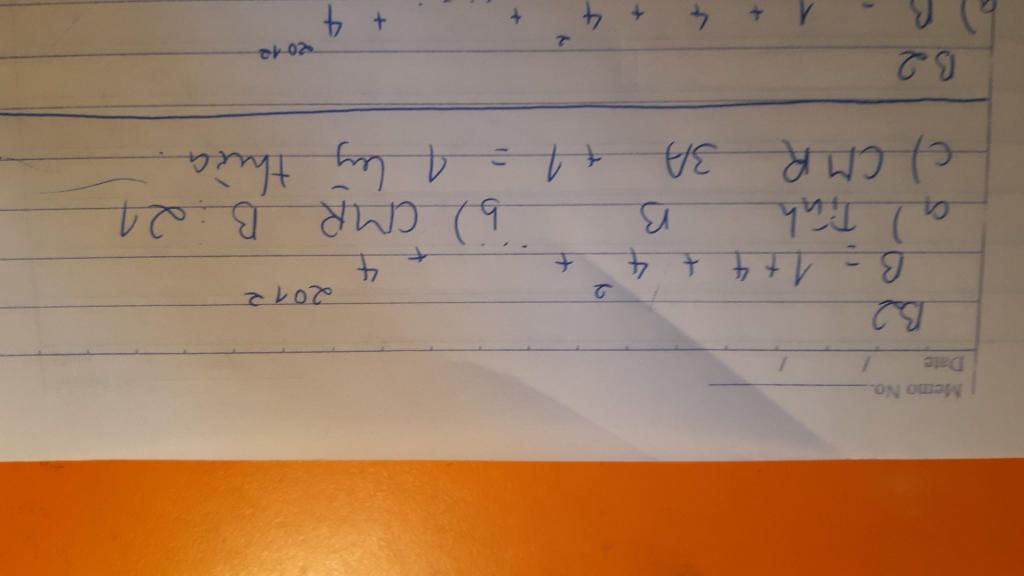 Memo No.
Date / /
B2
B = 1 + 4 + 4² + ... + 4²⁰¹²
a) Tính B b) CMR B : 21
c) CMR 3A + 1 = 1 lũy thừa.
B2
a) B = 1 + 4 + 4² + ... + 4²⁰¹²